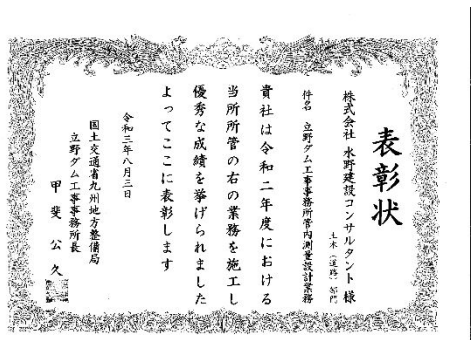 表彰状
株式会社 水野建設コンサルタント 様
土木(道路)部門
件名 立野ダム工事事務所管内測量設計業務
貴社は令和二年度における
当所所管の右の業務を施工し
優秀な成績を挙げられました
よってここに表彰します
令和三年八月三日
国土交通省九州地方整備局
立野ダム工事事務所長
甲斐公久